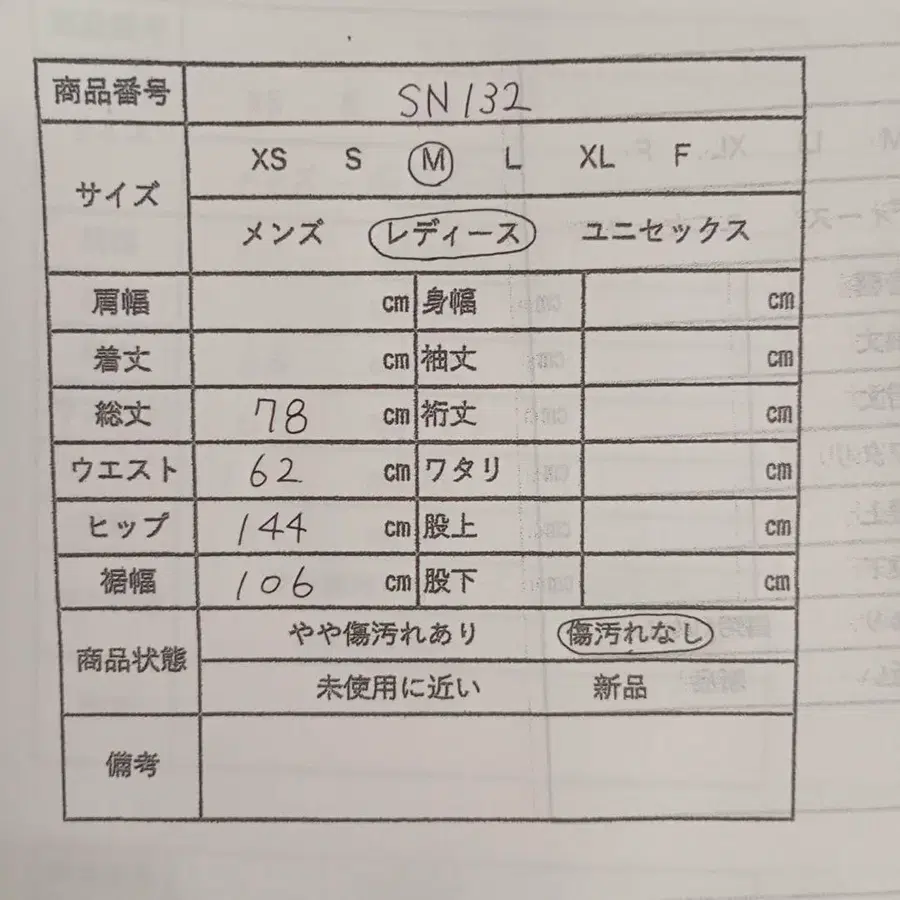 商品番号 SN132
サイズ
XS S M L XL F
メンズ レディース ユニセックス
肩幅 cm 身幅 cm
着丈 cm 袖丈 cm
総丈 78 cm 裄丈 cm
ウエスト 62 cm ワタリ cm
ヒップ 144 cm 股上 cm
裾幅 106 cm 股下 cm
商品状態
やや傷汚れあり 傷汚れなし
未使用に近い 新品
備考